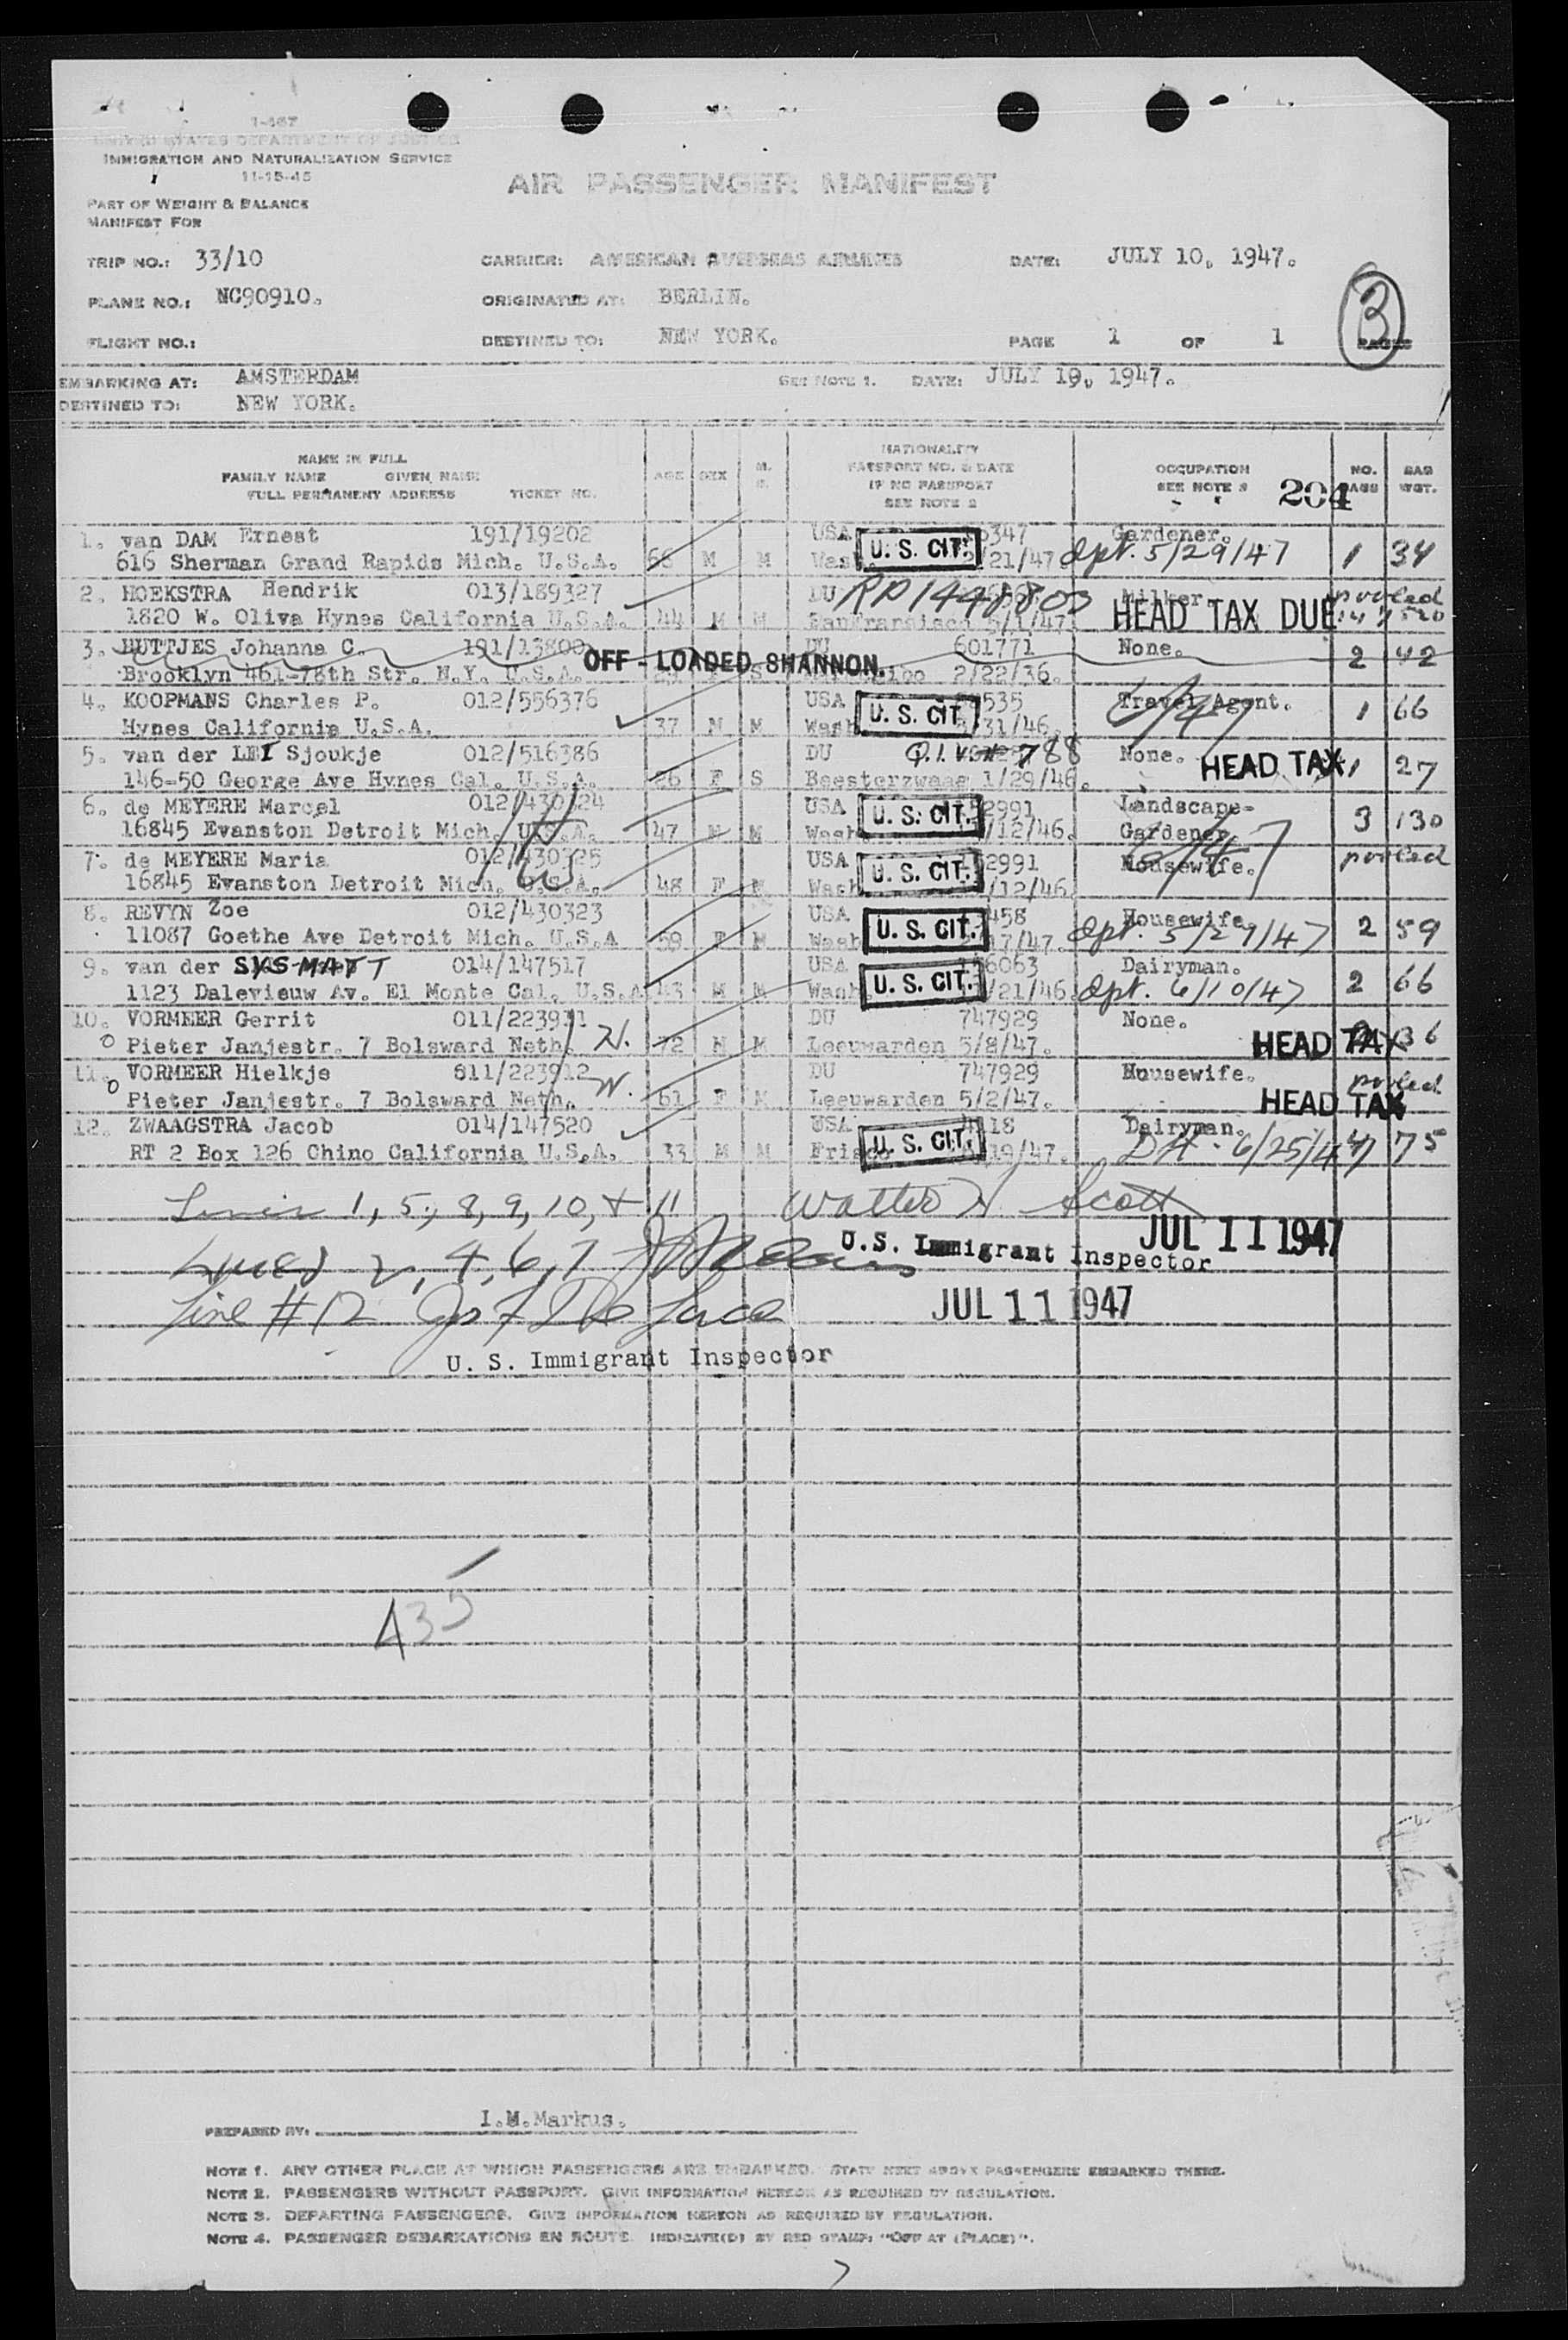 I-467
UNITED STATES DEPARTMENT OF JUSTICE
IMMIGRATION AND NATURALIZATION SERVICE
11-15-45
AIR PASSENGER MANIFEST
PART OF WEIGHT & BALANCE
MANIFEST FOR
TRIP NO.: 33/10 CARRIER: AMERICAN OVERSEAS AIRLINES DATE: JULY 10, 1947.
PLANE NO.: NC90910. ORIGINATED AT: BERLIN.
3
FLIGHT NO.: DESTINED TO: NEW YORK. PAGE 1 OF 1 PAGES
EMBARKING AT: AMSTERDAM SEE NOTE 1. DATE: JULY 19, 1947.
DESTINED TO: NEW YORK.
NAME IN FULL
FAMILY NAME GIVEN NAME
FULL PERMANENT ADDRESS TICKET NO.
AGE SEX M. S.
NATIONALITY
PASSPORT NO. & DATE
IF NO PASSPORT
SEE NOTE 2
OCCUPATION
SEE NOTE 3
204
NO. BAGS
BAG WGT.
1. van DAM Ernest 191/19202 USA 347 Gardener.
616 Sherman Grand Rapids Mich. U.S.A. 66 M M Wash. U. S. CIT. /21/47 Dpt. 5/29/47 1 34
2. HOEKSTRA Hendrik 013/189327 DU RP1448803 Milker pooled
1820 W. Oliva Hynes California U.S.A. 44 M M SanFransisco 5/1/47. HEAD TAX DUE
3. BUTTJES Johanna C. 191/13800 DU 601771 None. 2 42
Brooklyn 461-78th Str. N.Y. U.S.A. OFF - LOADED SHANNON. S 2/22/36.
4. KOOPMANS Charles P. 012/556376 USA 535 Travel Agent. 1 66
Hynes California U.S.A. 37 M M Wash U. S. CIT. /31/46. 6/47
5. van der LEI Sjoukje 012/516386 DU Q.I.V. 788 None. HEAD TAX 1 27
146-50 George Ave Hynes Cal. U.S.A. 26 F S Beesterzwaag 1/29/46.
6. de MEYERE Marcel 012/430324 USA 2991 Landscape- 3 130
16845 Evanston Detroit Mich. U.S.A. 47 M M Wash U. S. CIT. /12/46. Gardener
7. de MEYERE Maria 012/430325 USA 2991 Housewife. 6/47 pooled
16845 Evanston Detroit Mich. U.S.A. 48 F M Wash U. S. CIT. /12/46.
8. REVYN Zoe 012/430323 USA 458 Housewife 2 59
11087 Goethe Ave Detroit Mich. U.S.A 59 F M Wash U. S. CIT. 17/47. Dpt. 5/29/47
9. van der SYS MATT 014/147517 USA 6063 Dairyman. 2 66
1123 Dalevieuw Av. El Monte Cal. U.S.A 43 M M Wash. U. S. CIT. /21/46. Dpt. 6/10/47
10. VORMEER Gerrit 011/223911 DU 747929 None.
Pieter Janjestr. 7 Bolsward Neth. N. 72 M M Leeuwarden 5/8/47. HEAD TAX 36
11. VORMEER Hielkje 811/223912 DU 747929 Housewife. pooled
Pieter Janjestr. 7 Bolsward Neth. N. 61 F M Leeuwarden 5/2/47. HEAD TAX
12. ZWAAGSTRA Jacob 014/147520 USA 18 Dairyman.
RT 2 Box 126 Chino California U.S.A. 33 M M Frisco U. S. CIT. /19/47. 6/25/47 75
Lines 1, 5, 8, 9, 10, + 11 Walter H Scott
U.S. Immigrant Inspector JUL 11 1947
Lines 2, 4, 6, 7
Line #12
JUL 11 1947
U. S. Immigrant Inspector
435
PREPARED BY: I.M.Markus.
NOTE 1. ANY OTHER PLACE AT WHICH PASSENGERS ARE EMBARKED. STATE NEXT ABOVE PASSENGERS EMBARKED THERE.
NOTE 2. PASSENGERS WITHOUT PASSPORT. GIVE INFORMATION HEREON AS REQUIRED BY REGULATION.
NOTE 3. DEPARTING PASSENGERS. GIVE INFORMATION HEREON AS REQUIRED BY REGULATION.
NOTE 4. PASSENGER DEBARKATIONS EN ROUTE. INDICATE(D) BY RED STAMP: "OFF AT (PLACE)".